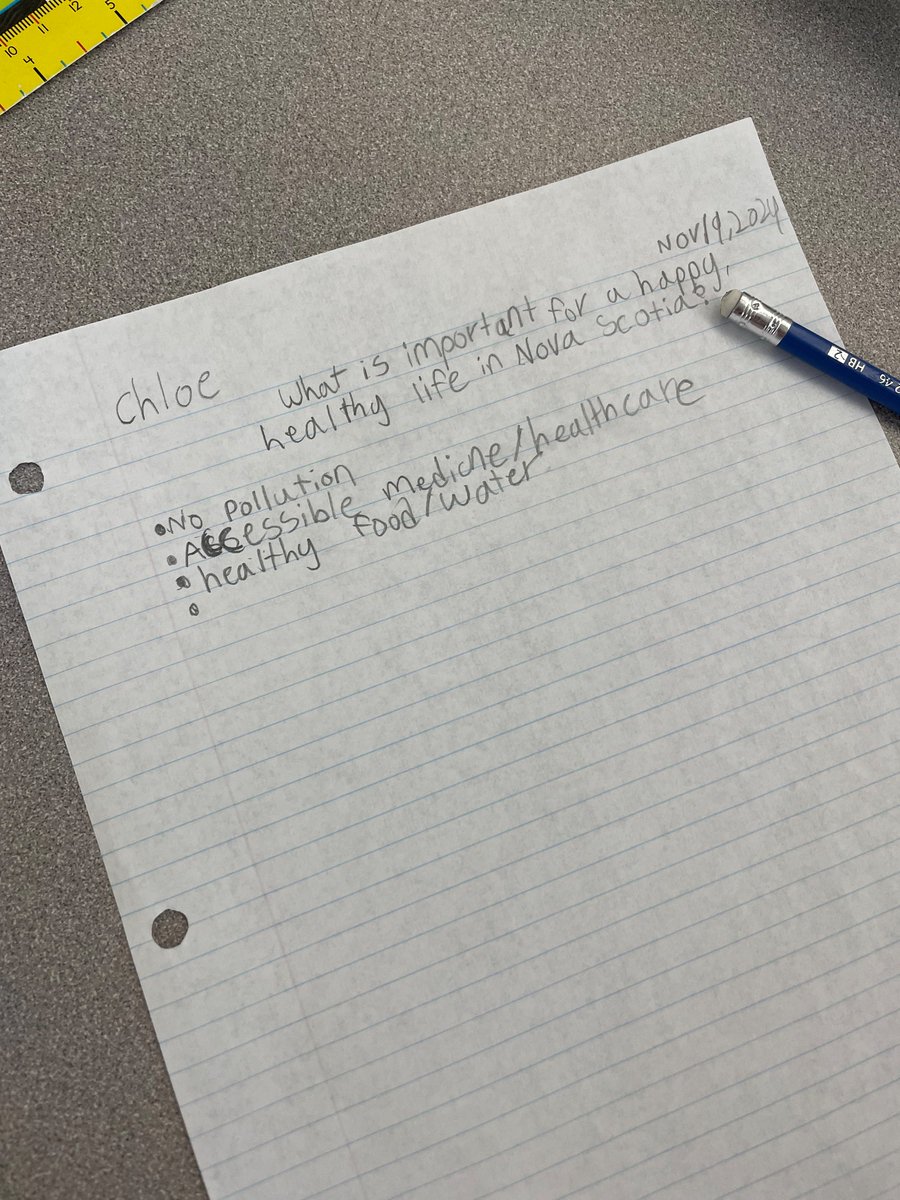 10 11 12
4 5
Nov 19, 2024
Chloe What is important for a happy,
healthy life in Nova Scotia?
•No pollution
•Accessible medicine/healthcare
•healthy food/water
•
HB 2